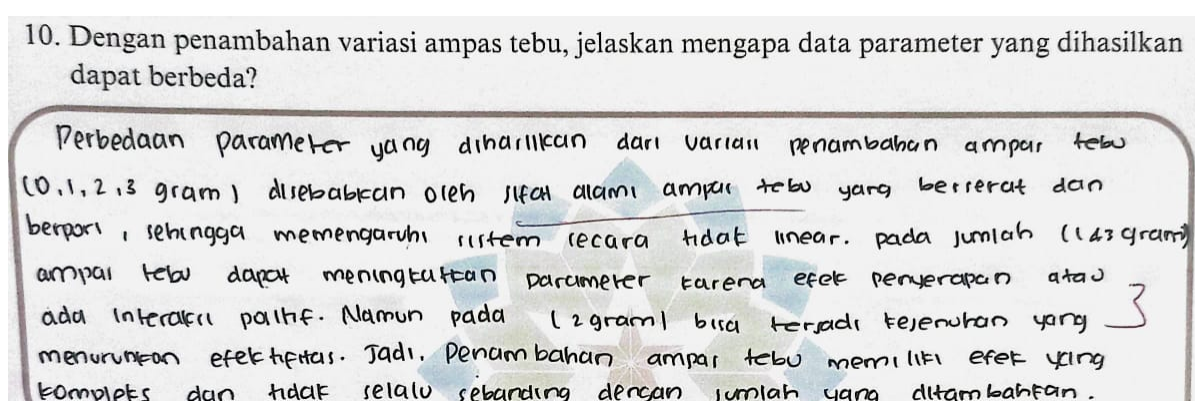 10. Dengan penambahan variasi ampas tebu, jelaskan mengapa data parameter yang dihasilkan
dapat berbeda?
Perbedaan parameter yang dihasilkan dari variasi penambahan ampas tebu
(0,1,2,3 gram) disebabkan oleh sifat alami ampas tebu yang berserat dan
berpori, sehingga memengaruhi sistem secara tidak linear. pada jumlah (1&3 gram)
ampas tebu dapat meningkatkan parameter karena efek penyerapan atau
ada interaksi positif. Namun pada (2 gram) bisa terjadi kejenuhan yang
3
menurunkan efektifitas. Jadi, penambahan ampas tebu memiliki efek yang
kompleks dan tidak selalu sebanding dengan jumlah yang ditambahkan.